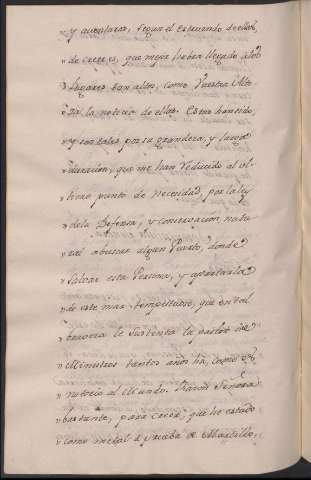 " y aventuras, segun el estruendo de ellos,
" de creer es, que mejor habra llegado a los
" lugares tan altos, como Vuestra Alte-
" za, la noticia de ellos. Estos han sido,
" y son tales por su grandeza, y larga
" duracion, que me han reducido al ul-
" timo punto de necesidad, por la ley
" de la Defensa, y conservacion natu-
" ral a buscar algun Puerto, donde
" salvar esta Persona, y apartarla
" de este mar tempestuoso, que en tal
" braveza le sustenta la pasion de
" Ministros tantos años ha, como es
" notorio al Mundo. Razon Señora
" bastante, para creer, que he estado
" como metal a prueba de Martillo,